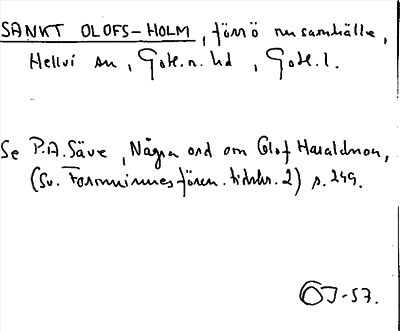 SANKT OLOFS-HOLM, förr ö nu samhälle,
Hellvi sn, Gotl. n. hd, Gotl. l.
Se P.A. Säve, Några ord om Olof Haraldson,
(Sv. Fornminnesfören. tidskr. 2) s. 249.
OJ-57.